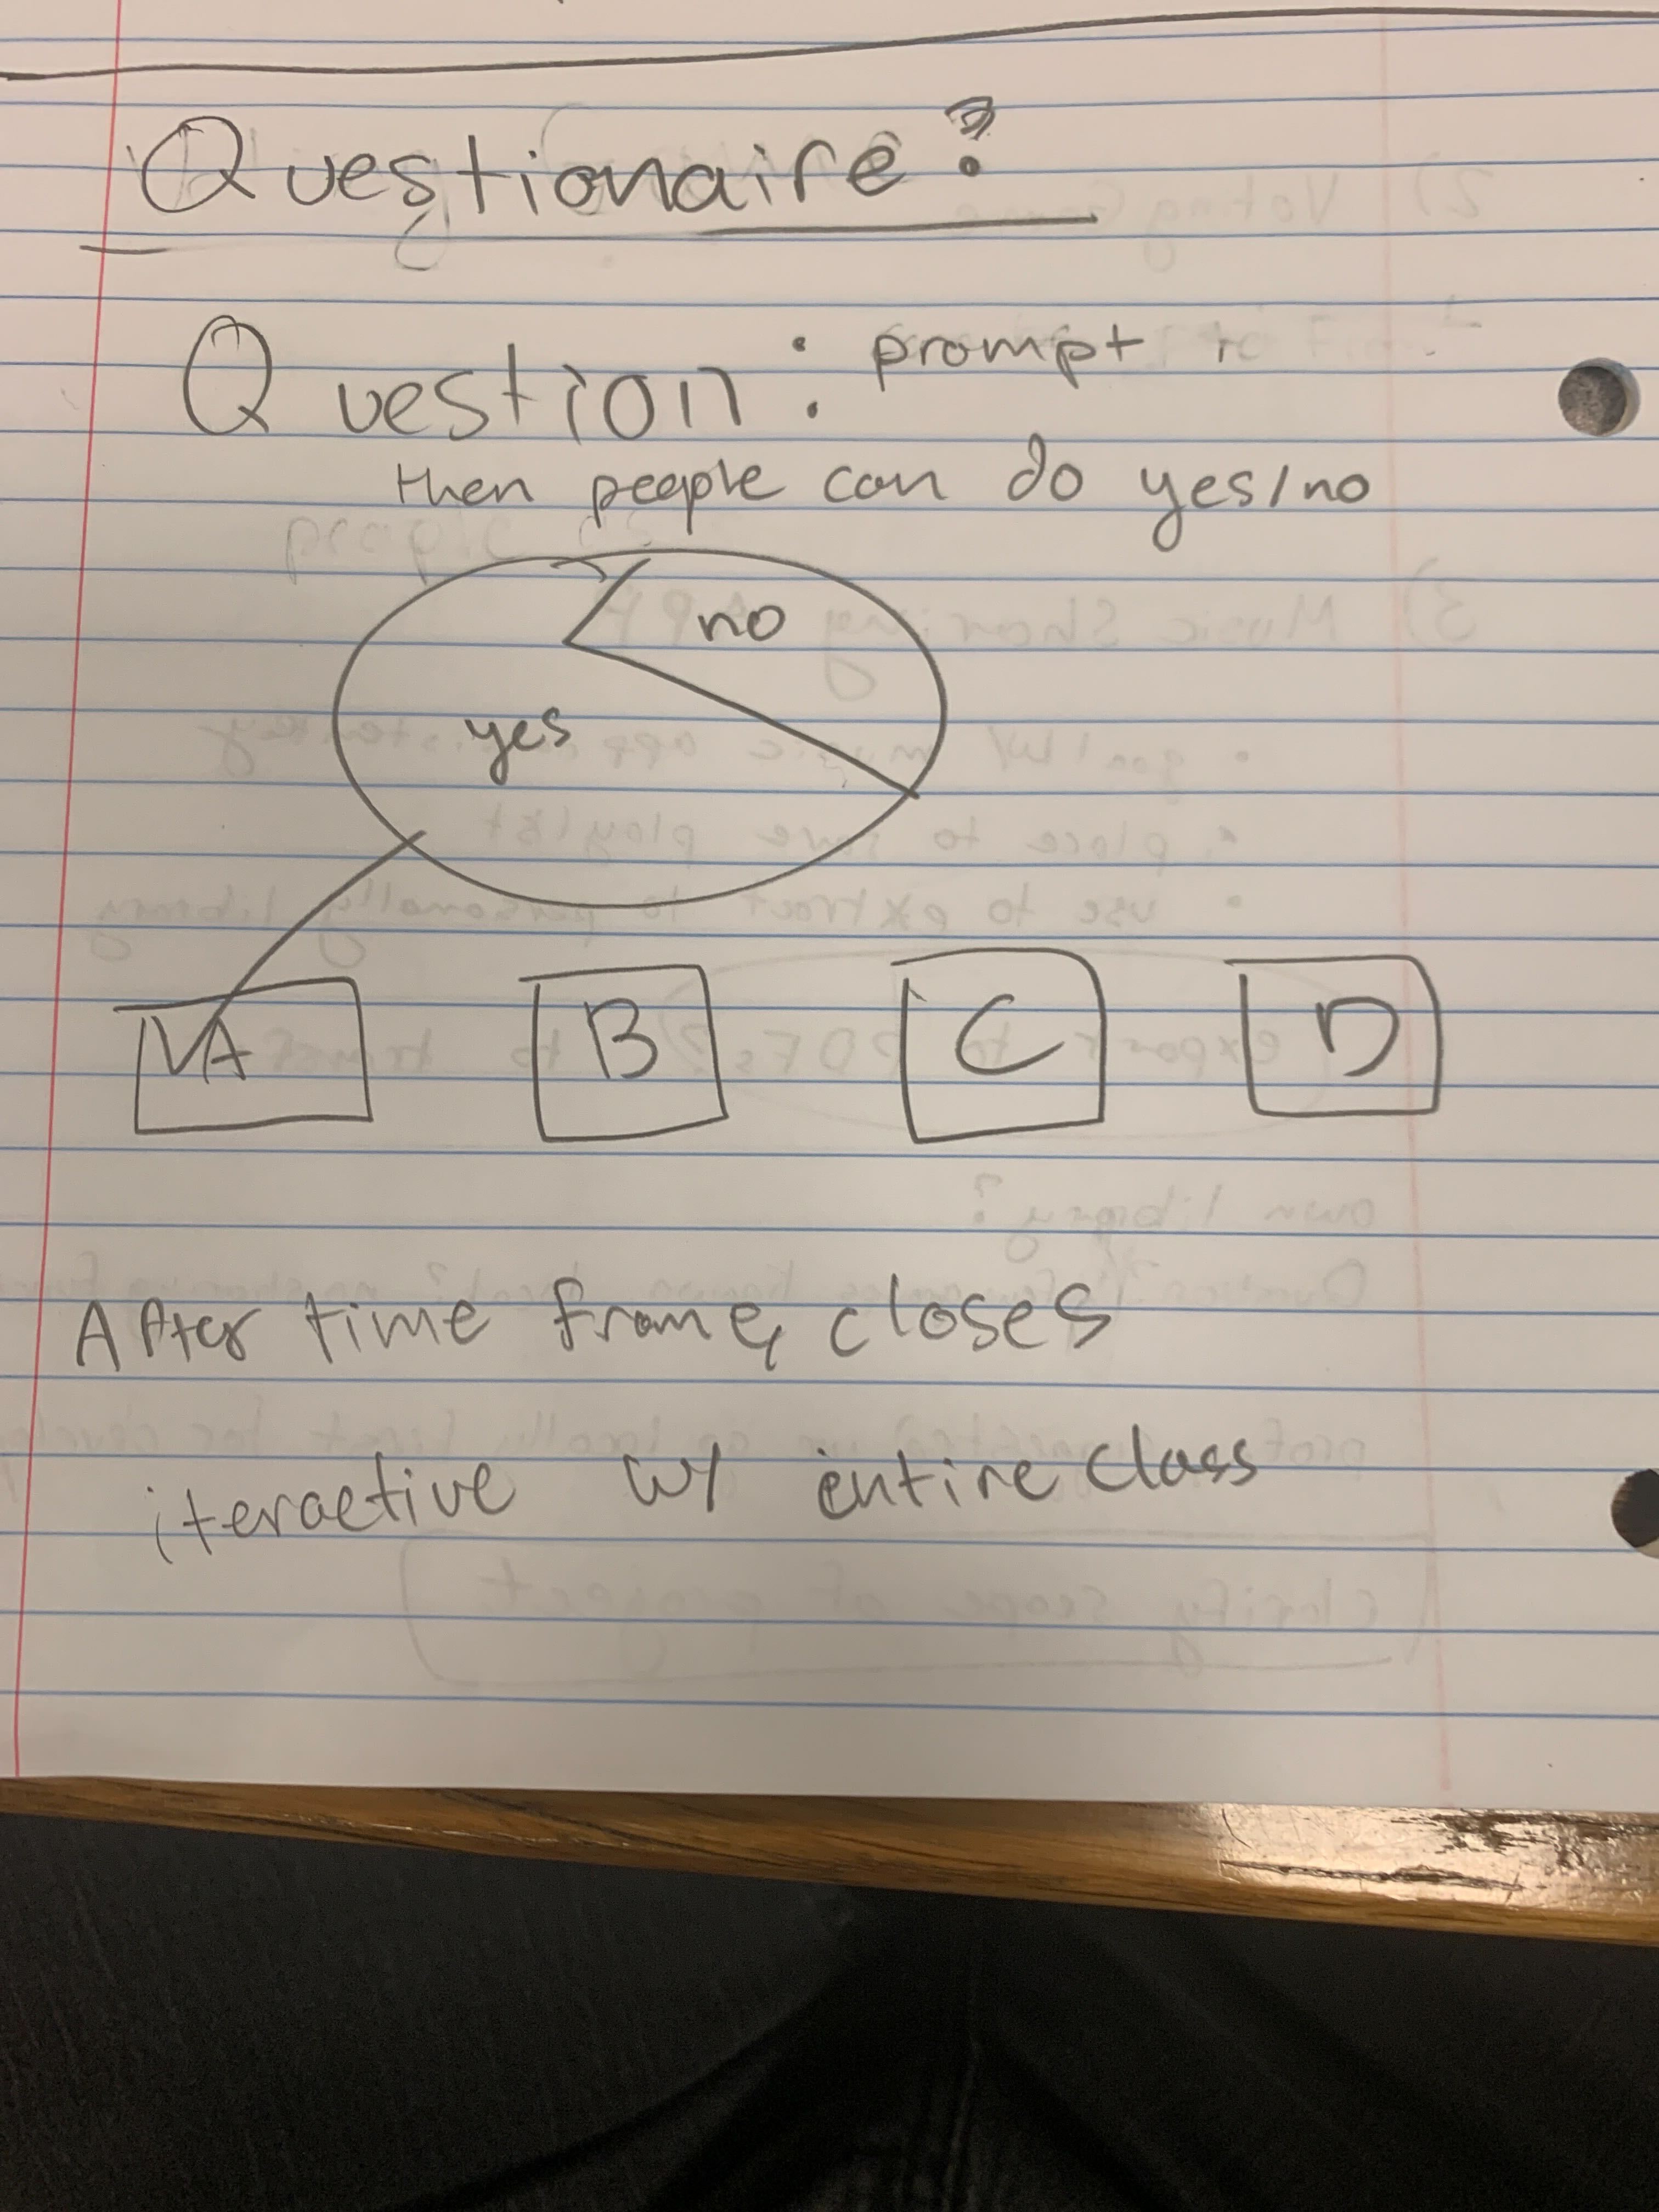 Questionaire?
Question: prompt
then people can do yes/no
no
yes
A B C D
After time frame, closes
iteractive w/ entire class